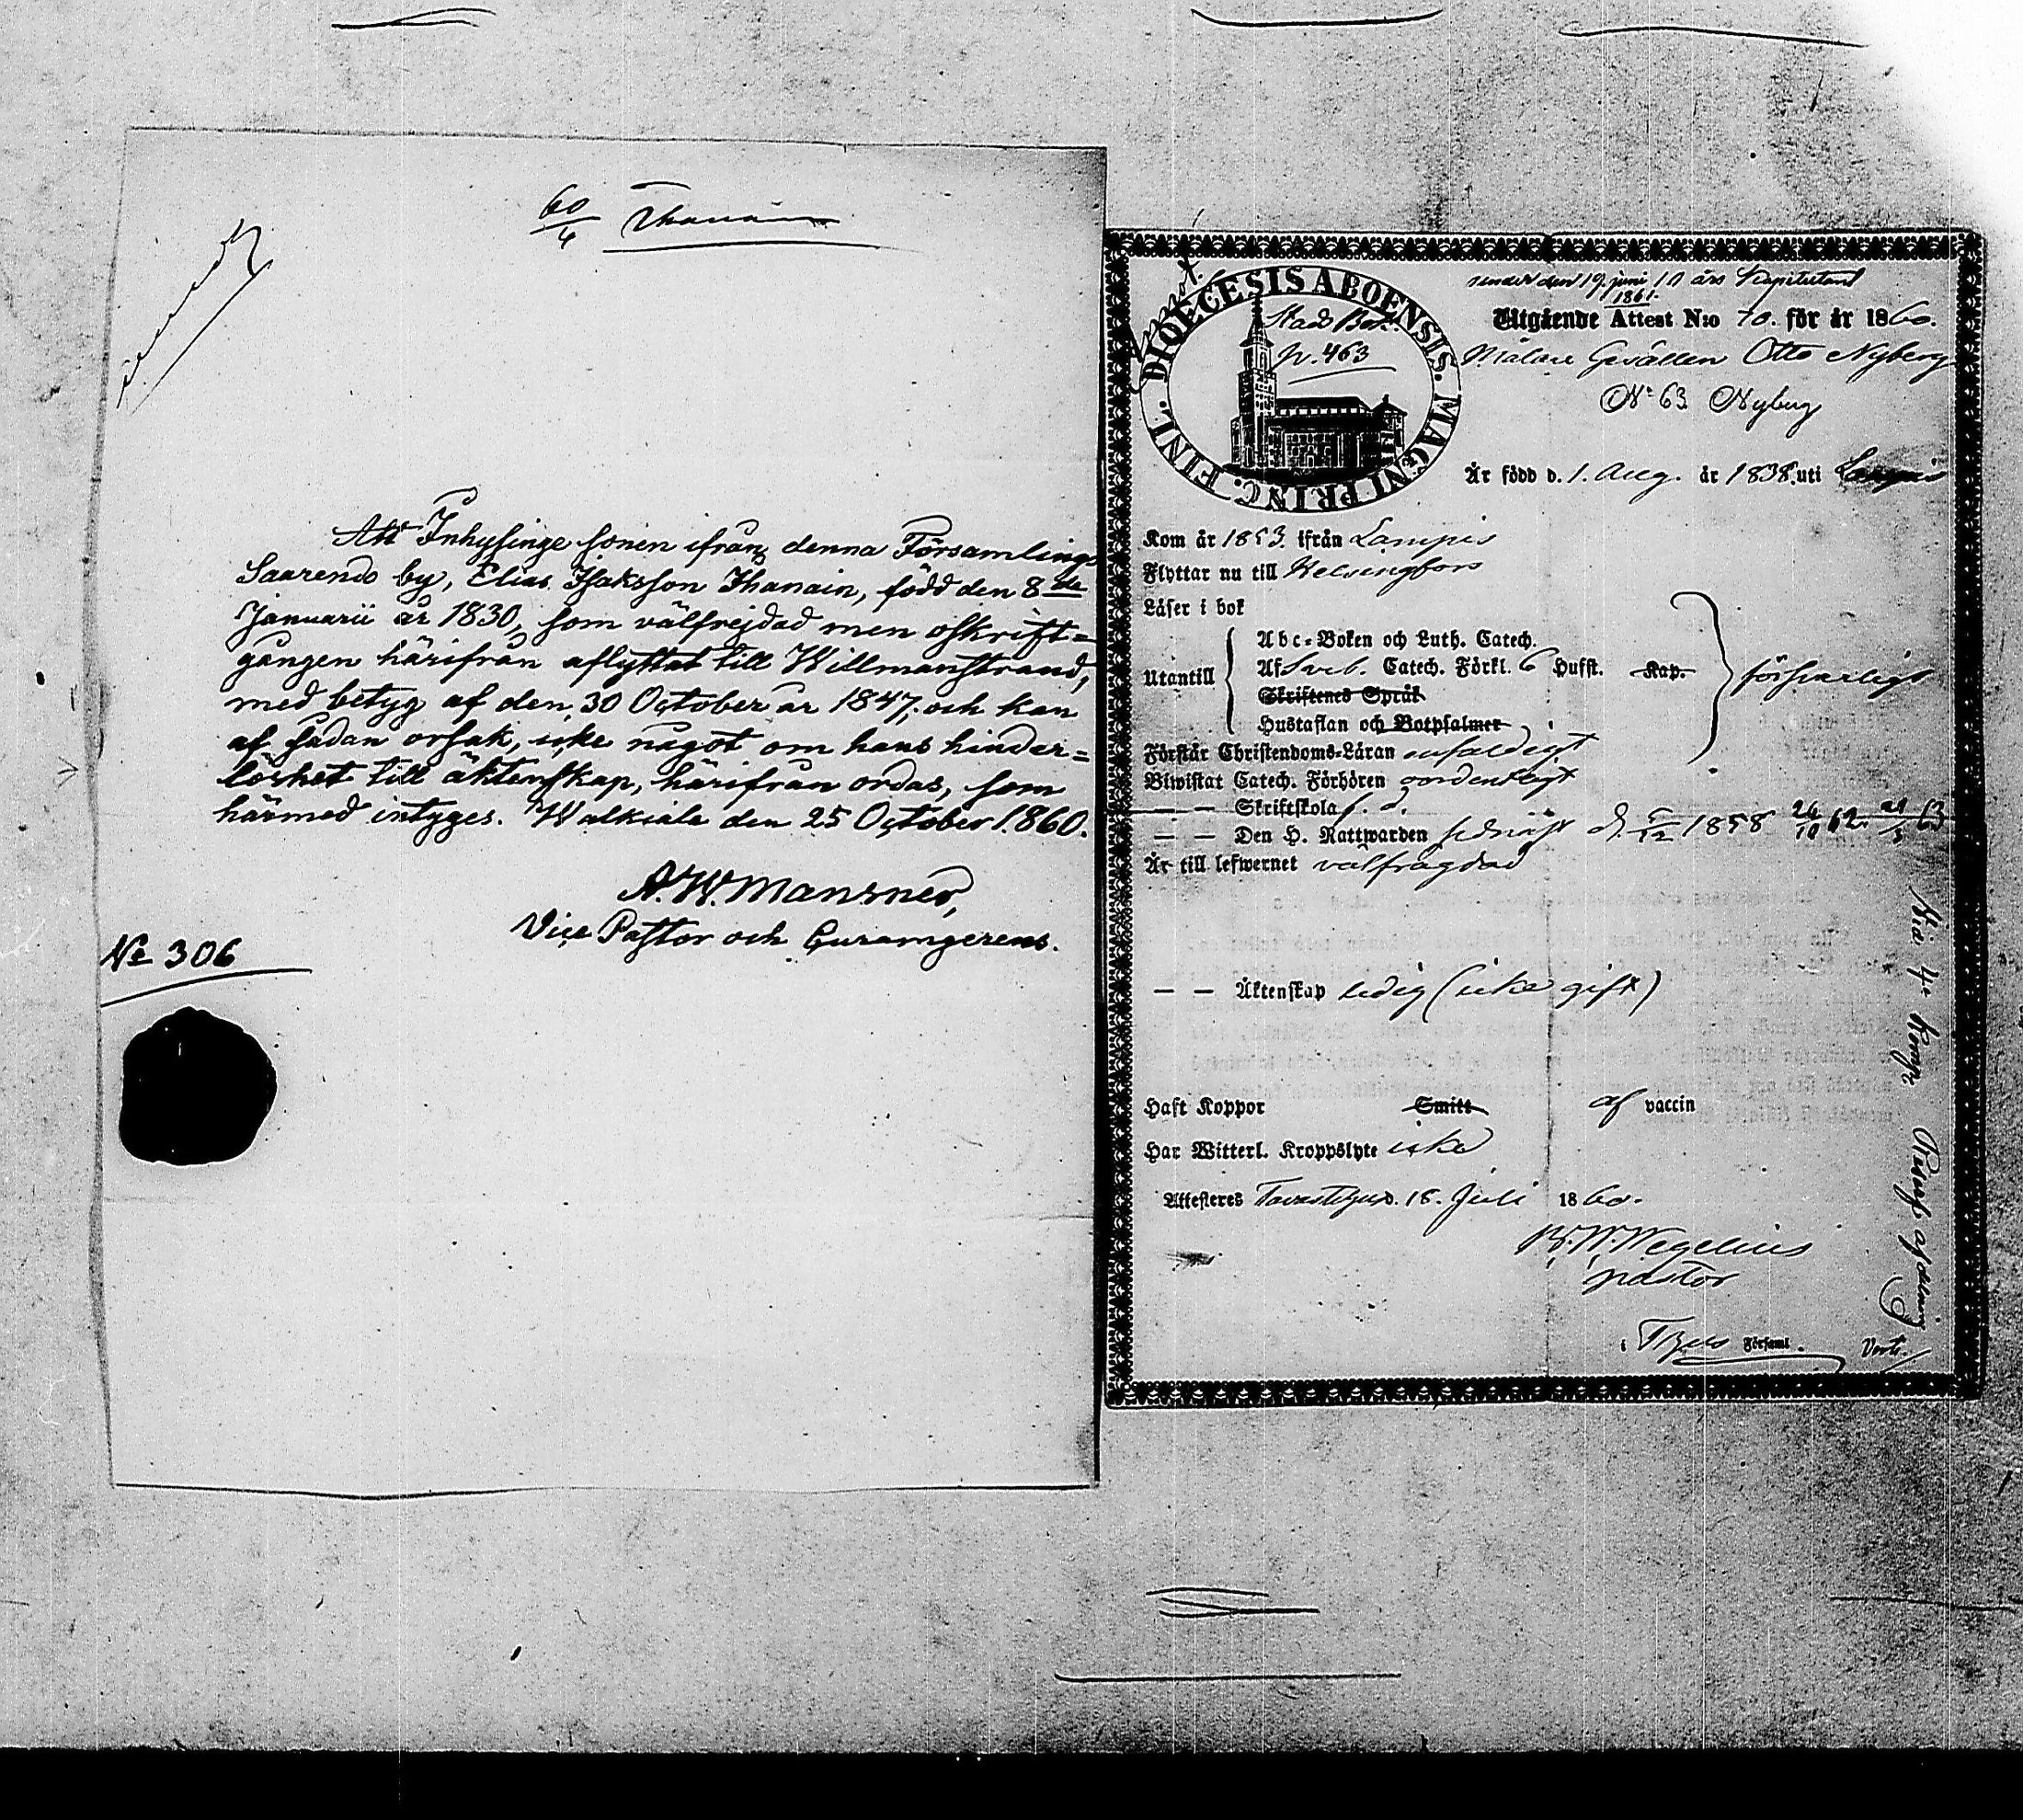 60
4
Att Inhysinge sonen ifrån denna Församlings
Saarendo by, Elias Isaksson Ihanain, född den 8de
Januarii år 1830, som välfrejdad men oskrift=
gången härifrån aflyttat till Willmanstrand,
med betyg af den 30 October år 1847, och kan
af sådan orsak, icke något om hans hinder=
löshet till äktenskap, härifrån ordas, som
härmed intyges. Walkiala den 25 October 1860.
A. W. Mansner,
Vice Pastor och Curamgerens.
No 306
DIOECESIS ABOENSIS. MAGNI PRINC. FINL.
N. 463
den 19 juni 10 års Kapitulant
1861.
Utgående Attest N:o 70. för år 1860.
Målare Gesällen Otto Nyberg
No 63 Nyberg
Är född d. 1. Aug. år 1838. uti Lampis
Kom år 1853. ifrån Lampis
Flyttar nu till Helsingfors
Läser i bok
Utantill
Abc-Boken och Luth. Catech.
Af Sveb. Catech. Förkl. 6 Hufst. Kap.
försvarligt
Skriftenes Språk
Hustaflan och Botpsalmer
Förstår Christendoms-Läran enfaldigt
Biwistat Catech. Förhören oordentligt
— — Skriftskola
— — Den H. Nattwarden sednast d. 5/12 1858 26/10 62. 21/3 63
Är till lefwernet välfrägdad
— — Äktenskap ledig (icke gift)
Haft Koppor Smitt af vaccin
Har Witterl. Kroppslyte icke
Attesteres Tavastehus d. 18. Juli 1860.
Wegelius
pastor
i Församl.
Vert.